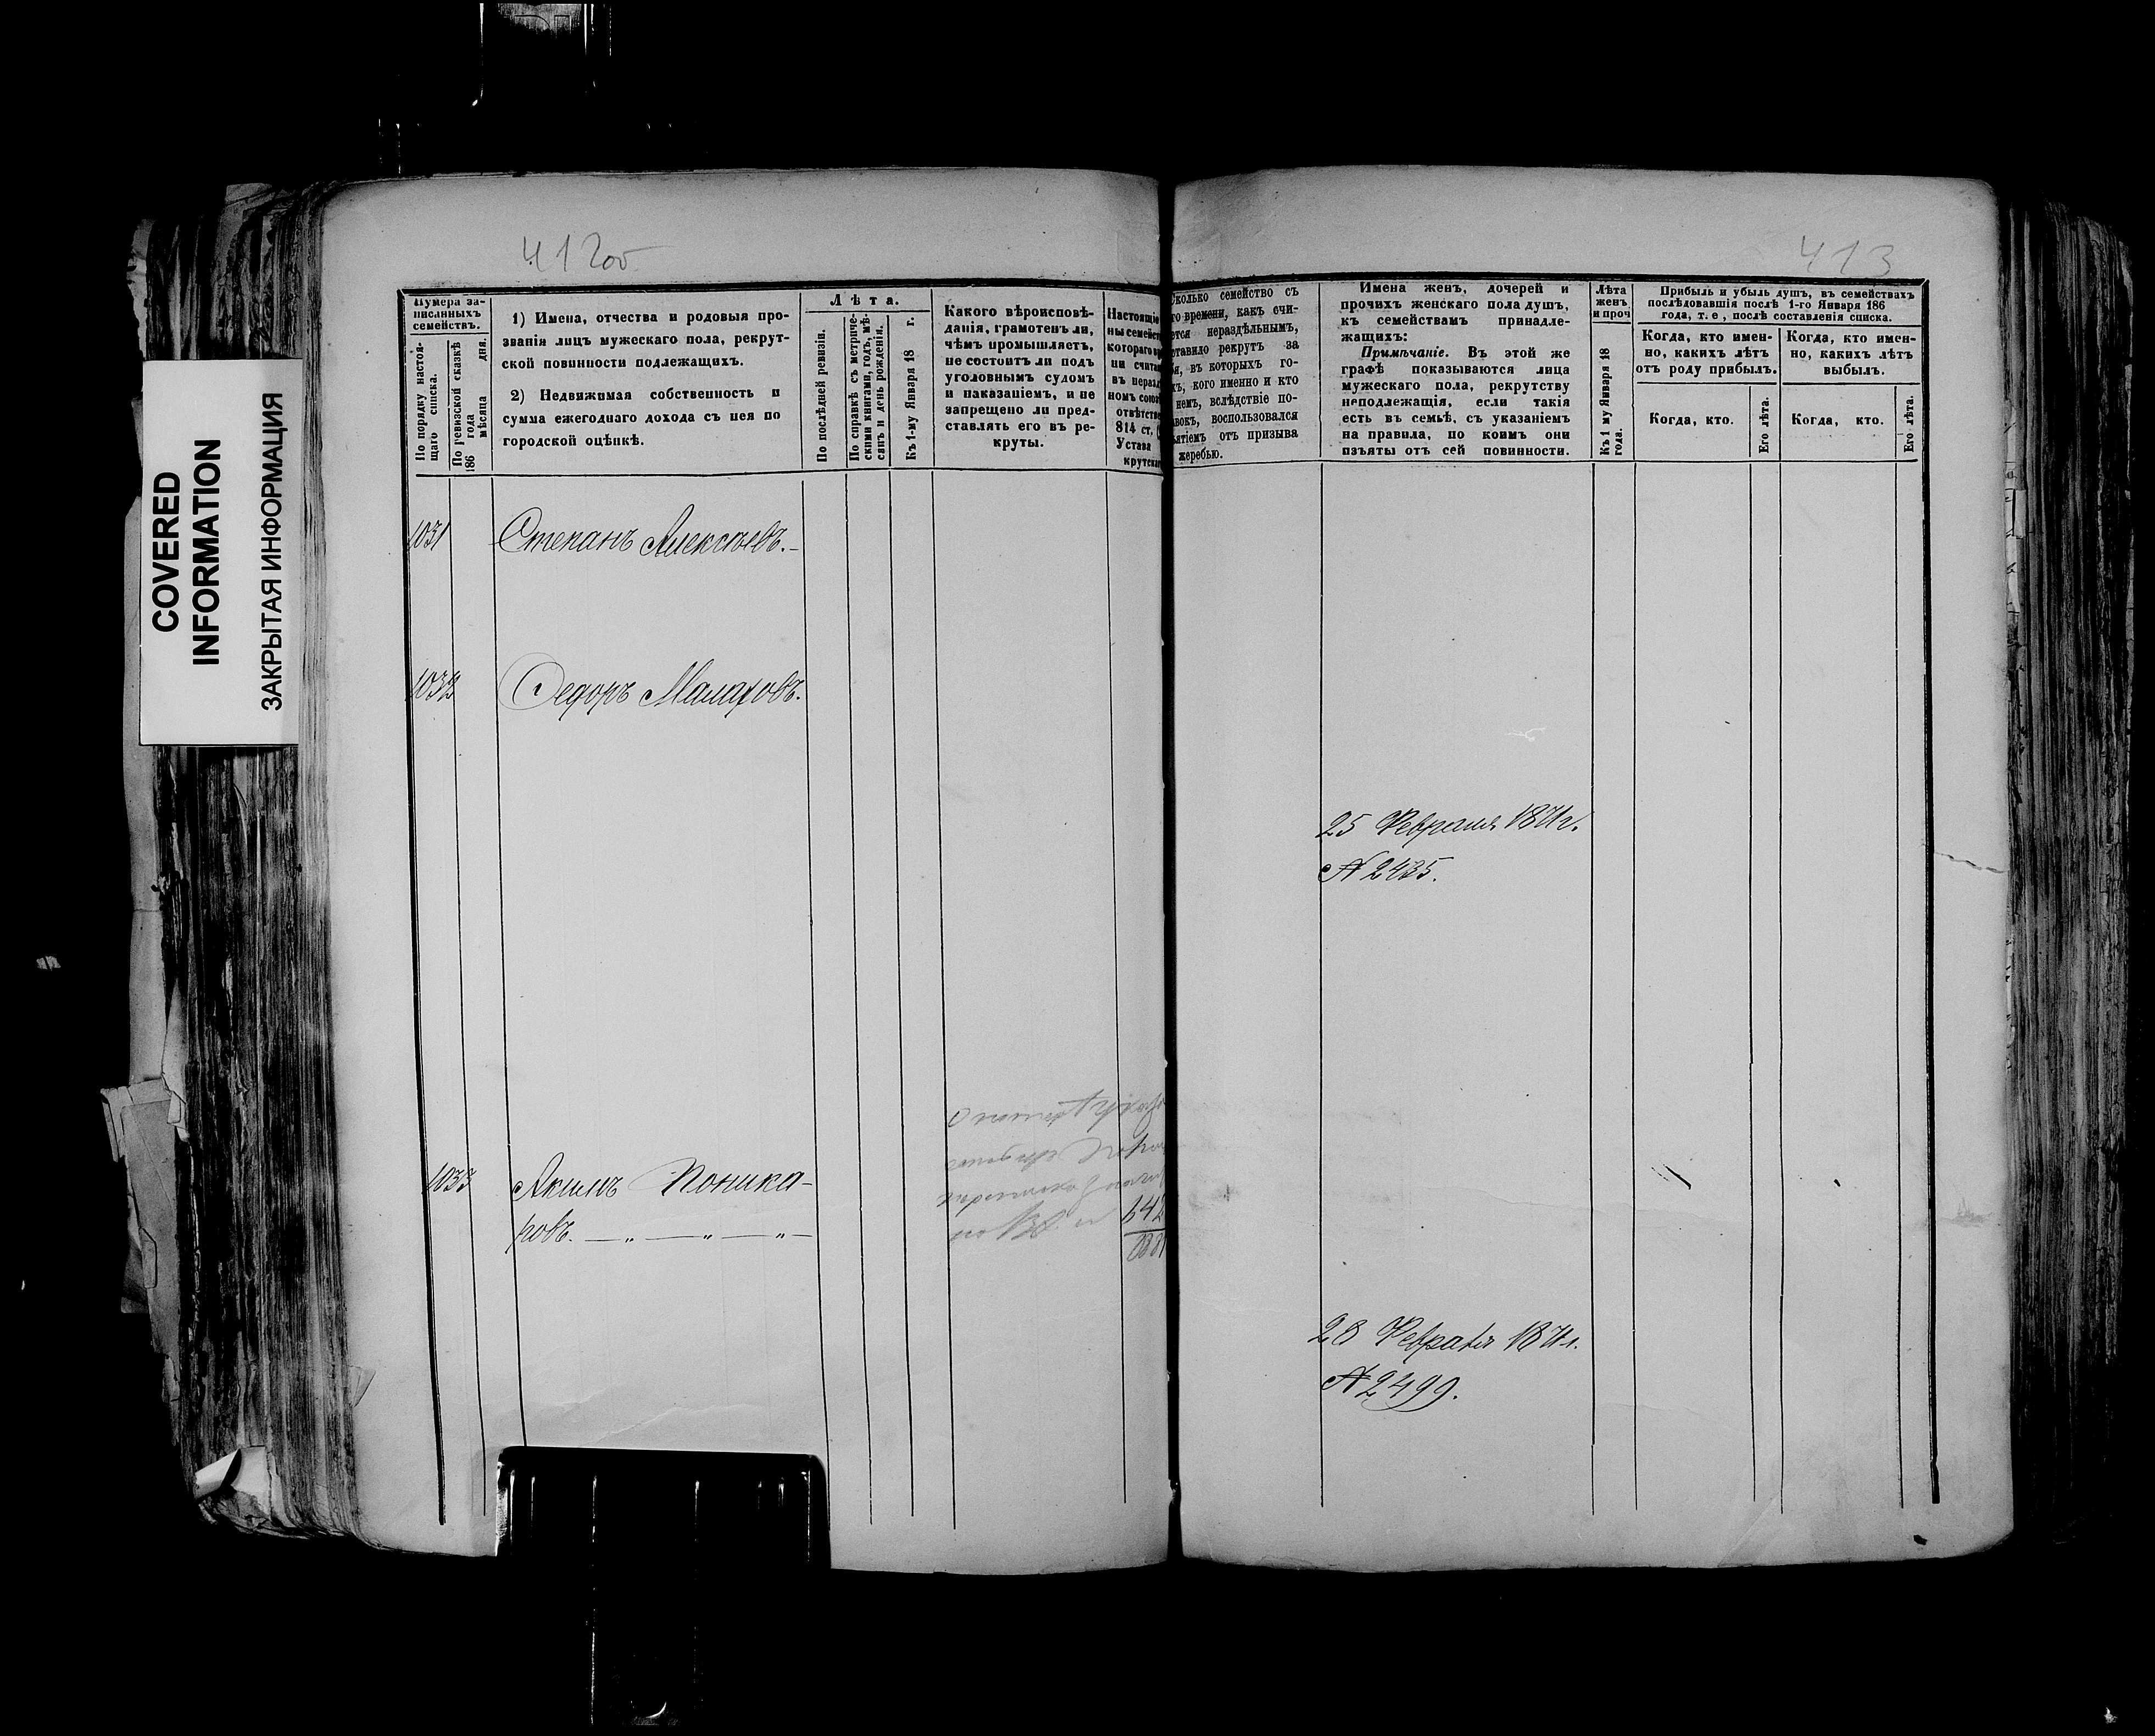 COVERED
INFORMATION
ЗАКРЫТАЯ ИНФОРМАЦИЯ
412об
Нумера за-
писанныхъ
семействъ.
По порядку настоя-
щаго списка.
По ревизской сказкѣ
186 года
мѣсяца дня.
1) Имена, отчества и родовыя про-
званія лицъ мужескаго пола, рекрут-
ской повинности подлежащихъ.
2) Недвижимая собственность и
сумма ежегоднаго дохода съ нея по
городской оцѣнкѣ.
Лѣта.
По послѣдней ревизіи.
По справкѣ съ метриче-
скими книгами, годъ, мѣ-
сяцъ и день рожденія.
Къ 1-му Января 18 г.
Какого вѣроисповѣ-
данія, грамотенъ ли,
чѣмъ промышляетъ,
не состоитъ ли подъ
уголовнымъ судомъ
и наказаніемъ, и не
запрещено ли пред-
ставлять его въ ре-
круты.
Настоящіе
ны семейст
котораго вр
ни считае
въ неразд
номъ союз
отвѣтстве
814 ст.
Устава
крутска
1031
Степанъ Алексѣевъ.-
1032
Ѳедоръ Малаховъ.
1033
Акимъ Поника-
ровъ. — „ — „ — „ —
413
Сколько семейство съ
го времени, какъ счи-
ется нераздѣльнымъ,
ставило рекрутъ за
я, въ которыхъ го-
хъ, кого именно и кто
немъ, вслѣдствіе по-
вокъ, воспользовался
ятіемъ отъ призыва
жеребью.
Имена женъ, дочерей и
прочихъ женскаго пола душъ,
къ семействамъ принадле-
жащихъ:
Примѣчаніе. Въ этой же
графѣ показываются лица
мужескаго пола, рекрутству
неподлежащія, если такія
есть въ семьѣ, съ указаніемъ
на правила, по коимъ они
изъяты отъ сей повинности.
Лѣта
женъ
и проч
Къ 1 му Января 18
года.
Прибыль и убыль душъ, въ семействахъ
послѣдовавшія послѣ 1-го Января 186
года, т. е , послѣ составленія списка.
Когда, кто имен-
но, какихъ лѣтъ
отъ роду прибылъ.
Когда, кто имен-
но, какихъ лѣтъ
выбылъ.
Когда, кто.
Его лѣта.
Когда, кто.
Его лѣта.
25 Февраля 1871г.
N 2435.
28 Февраля 1871г.
N 2499.